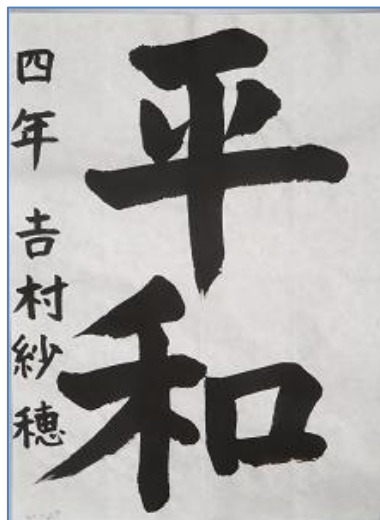 平和
四年 吉村紗穂